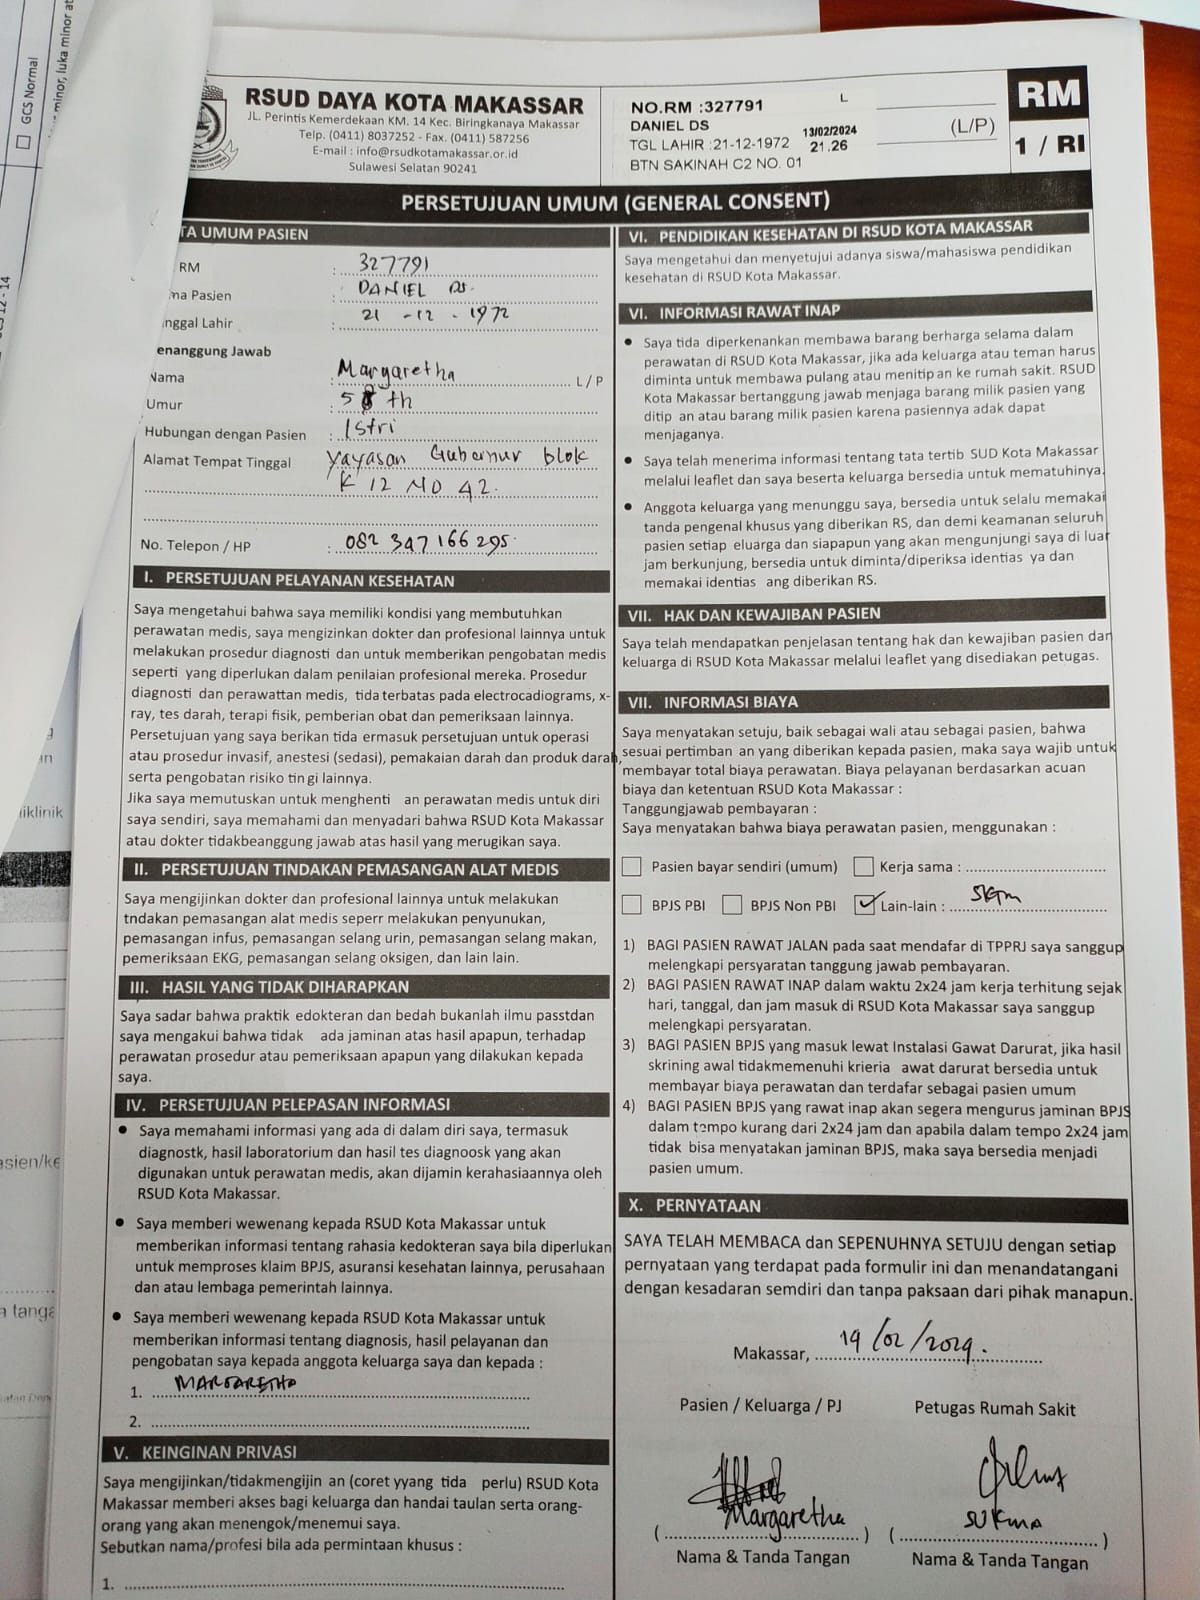 GCS Normal
minor, luka minor at
RSUD DAYA KOTA MAKASSAR
JL. Perintis Kemerdekaan KM. 14 Kec. Biringkanaya Makassar
Telp. (0411) 8037252 - Fax. (0411) 587256
E-mail : info@rsudkotamakassar.or.id
Sulawesi Selatan 90241
NO.RM :327791 L
DANIEL DS 13/02/2024
TGL LAHIR :21-12-1972 21.26
BTN SAKINAH C2 NO. 01
(L/P)
RM
1 / RI
PERSETUJUAN UMUM (GENERAL CONSENT)
TA UMUM PASIEN
RM : 327791
ma Pasien : DANIEL DS.
nggal Lahir : 21 -12 - 1972
enanggung Jawab
Nama : Margaretha L / P
Umur : 5 th
Hubungan dengan Pasien : Istri
Alamat Tempat Tinggal : Yayasan Gubernur blok
K 12 NO 42.
No. Telepon / HP : 082 347 166 295
I. PERSETUJUAN PELAYANAN KESEHATAN
Saya mengetahui bahwa saya memiliki kondisi yang membutuhkan
perawatan medis, saya mengizinkan dokter dan profesional lainnya untuk
melakukan prosedur diagnosti dan untuk memberikan pengobatan medis
seperti yang diperlukan dalam penilaian profesional mereka. Prosedur
diagnosti dan perawattan medis, tida terbatas pada electrocadiograms, x-
ray, tes darah, terapi fisik, pemberian obat dan pemeriksaan lainnya.
Persetujuan yang saya berikan tida ermasuk persetujuan untuk operasi
atau prosedur invasif, anestesi (sedasi), pemakaian darah dan produk darah,
serta pengobatan risiko tin gi lainnya.
Jika saya memutuskan untuk menghenti an perawatan medis untuk diri
saya sendiri, saya memahami dan menyadari bahwa RSUD Kota Makassar
atau dokter tidakbeanggung jawab atas hasil yang merugikan saya.
II. PERSETUJUAN TINDAKAN PEMASANGAN ALAT MEDIS
Saya mengijinkan dokter dan profesional lainnya untuk melakukan
tndakan pemasangan alat medis seperr melakukan penyunukan,
pemasangan infus, pemasangan selang urin, pemasangan selang makan,
pemeriksaan EKG, pemasangan selang oksigen, dan lain lain.
III. HASIL YANG TIDAK DIHARAPKAN
Saya sadar bahwa praktik edokteran dan bedah bukanlah ilmu passtdan
saya mengakui bahwa tidak ada jaminan atas hasil apapun, terhadap
perawatan prosedur atau pemeriksaan apapun yang dilakukan kepada
saya.
IV. PERSETUJUAN PELEPASAN INFORMASI
• Saya memahami informasi yang ada di dalam diri saya, termasuk
diagnostk, hasil laboratorium dan hasil tes diagnoosk yang akan
digunakan untuk perawatan medis, akan dijamin kerahasiaannya oleh
RSUD Kota Makassar.
• Saya memberi wewenang kepada RSUD Kota Makassar untuk
memberikan informasi tentang rahasia kedokteran saya bila diperlukan
untuk memproses klaim BPJS, asuransi kesehatan lainnya, perusahaan
dan atau lembaga pemerintah lainnya.
• Saya memberi wewenang kepada RSUD Kota Makassar untuk
memberikan informasi tentang diagnosis, hasil pelayanan dan
pengobatan saya kepada anggota keluarga saya dan kepada :
1. MARGARETHA
2.
V. KEINGINAN PRIVASI
Saya mengijinkan/tidakmengijin an (coret yyang tida perlu) RSUD Kota
Makassar memberi akses bagi keluarga dan handai taulan serta orang-
orang yang akan menengok/menemui saya.
Sebutkan nama/profesi bila ada permintaan khusus :
1.
VI. PENDIDIKAN KESEHATAN DI RSUD KOTA MAKASSAR
Saya mengetahui dan menyetujui adanya siswa/mahasiswa pendidikan
kesehatan di RSUD Kota Makassar.
VI. INFORMASI RAWAT INAP
• Saya tida diperkenankan membawa barang berharga selama dalam
perawatan di RSUD Kota Makassar, jika ada keluarga atau teman harus
diminta untuk membawa pulang atau menitip an ke rumah sakit. RSUD
Kota Makassar bertanggung jawab menjaga barang milik pasien yang
ditip an atau barang milik pasien karena pasiennya adak dapat
menjaganya.
• Saya telah menerima informasi tentang tata tertib SUD Kota Makassar
melalui leaflet dan saya beserta keluarga bersedia untuk mematuhinya.
• Anggota keluarga yang menunggu saya, bersedia untuk selalu memakai
tanda pengenal khusus yang diberikan RS, dan demi keamanan seluruh
pasien setiap eluarga dan siapapun yang akan mengunjungi saya di luar
jam berkunjung, bersedia untuk diminta/diperiksa identias ya dan
memakai identias ang diberikan RS.
VII. HAK DAN KEWAJIBAN PASIEN
Saya telah mendapatkan penjelasan tentang hak dan kewajiban pasien dan
keluarga di RSUD Kota Makassar melalui leaflet yang disediakan petugas.
VII. INFORMASI BIAYA
Saya menyatakan setuju, baik sebagai wali atau sebagai pasien, bahwa
sesuai pertimban an yang diberikan kepada pasien, maka saya wajib untuk
membayar total biaya perawatan. Biaya pelayanan berdasarkan acuan
biaya dan ketentuan RSUD Kota Makassar :
Tanggungjawab pembayaran :
Saya menyatakan bahwa biaya perawatan pasien, menggunakan :
Pasien bayar sendiri (umum) Kerja sama :
BPJS PBI BPJS Non PBI Lain-lain : SKTM
1) BAGI PASIEN RAWAT JALAN pada saat mendafar di TPPRJ saya sanggup
melengkapi persyaratan tanggung jawab pembayaran.
2) BAGI PASIEN RAWAT INAP dalam waktu 2x24 jam kerja terhitung sejak
hari, tanggal, dan jam masuk di RSUD Kota Makassar saya sanggup
melengkapi persyaratan.
3) BAGI PASIEN BPJS yang masuk lewat Instalasi Gawat Darurat, jika hasil
skrining awal tidakmemenuhi krieria awat darurat bersedia untuk
membayar biaya perawatan dan terdafar sebagai pasien umum
4) BAGI PASIEN BPJS yang rawat inap akan segera mengurus jaminan BPJS
dalam tempo kurang dari 2x24 jam dan apabila dalam tempo 2x24 jam
tidak bisa menyatakan jaminan BPJS, maka saya bersedia menjadi
pasien umum.
X. PERNYATAAN
SAYA TELAH MEMBACA dan SEPENUHNYA SETUJU dengan setiap
pernyataan yang terdapat pada formulir ini dan menandatangani
dengan kesadaran semdiri dan tanpa paksaan dari pihak manapun.
Makassar, 19/02/2029.
Pasien / Keluarga / PJ Petugas Rumah Sakit
(Margaretha) (SUKMA)
Nama & Tanda Tangan Nama & Tanda Tangan